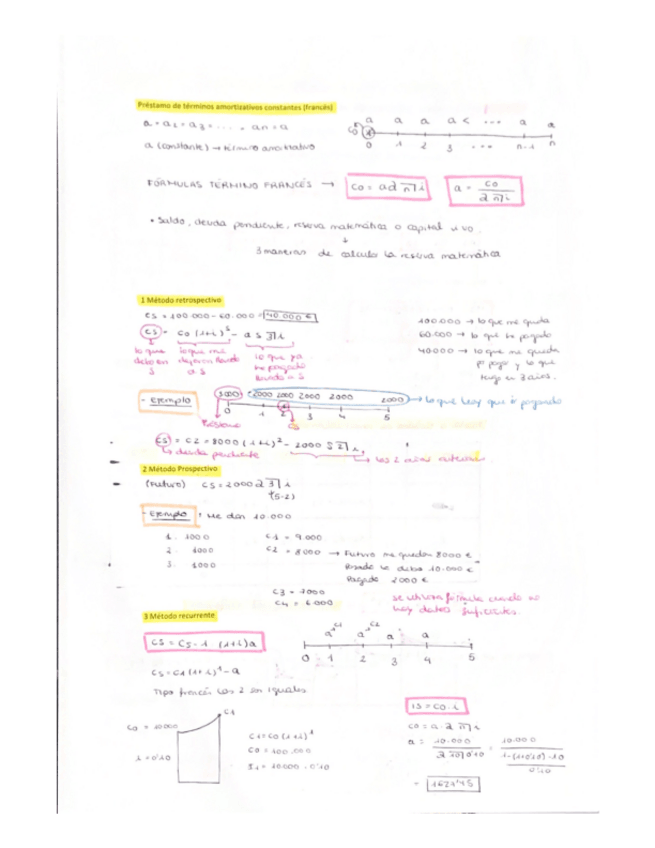 Préstamo de términos amortizativos constantes (francés)
a = a₂ = a₃ = ... = an = a
a (constante) → término amortizativo
a a a a < ... a a
Co
0 1 2 3 ... n-1 n
FÓRMULAS TÉRMINO FRANCÉS → Co = a a n⌉i a = Co / a n⌉i
• Saldo, deuda pendiente, reserva matemática o capital vivo
↓
3 maneras de calcular la reserva matemática
1 Método retrospectivo
CS = 100.000 - 60.000 = 40.000 €
CS = Co (1+i)^S - a S S⌉i
lo que debo en S
lo que me dejaron llevado a S
lo que ya he pagado llevado a S
100.000 → lo que me queda
60.000 → lo que he pagado
40.000 → lo que me queda
p. pagar y lo que
tengo en 3 años.
- Ejemplo
8000 2000 2000 2000 2000 2000 → lo que hay que ir pagando
0 1 2 3 4 5
Préstamo
CS
CS = C2 = 8000 (1+i)² - 2000 S 2⌉i
↳ deuda pendiente
→ los 2 años anteriores
2 Método Prospectivo
(Futuro) CS = 2000 a 3⌉i
(5-2)
- Ejemplo : Me dan 10.000
1. 1000 C1 = 9.000
2. 1000 C2 = 8000 → Futuro me quedan 8000 €
3. 1000 Pasado he debo 10.000 €
Pagado 2000 €
C3 = 7000
C4 = 6.000
se utiliza fórmula cuando no
hay datos suficientes.
3 Método recurrente
CS = CS-1 (1+i) a
CS = C1 (1+i)¹ - a
Tipo francés los 2 son iguales
C1 C2
a a a a
0 1 2 3 4 5
Co = 10000
C1
i = 0'10
C1 = Co (1+i)¹
Co = 100.000
I1 = 10000 · 0'10
IS = Co · i
Co = a · a n⌉i
a = 10.000 / a 10⌉0'10 = 10.000 / 1-(1+0'10)-10 / 0'10
= 1627'45